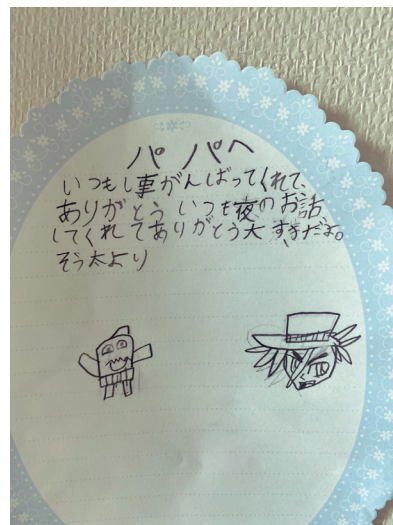 パパへ
いつもし事がんばってくれて、
ありがとう いつも夜のお話
してくれてありがとう大すきだよ。
そう太より